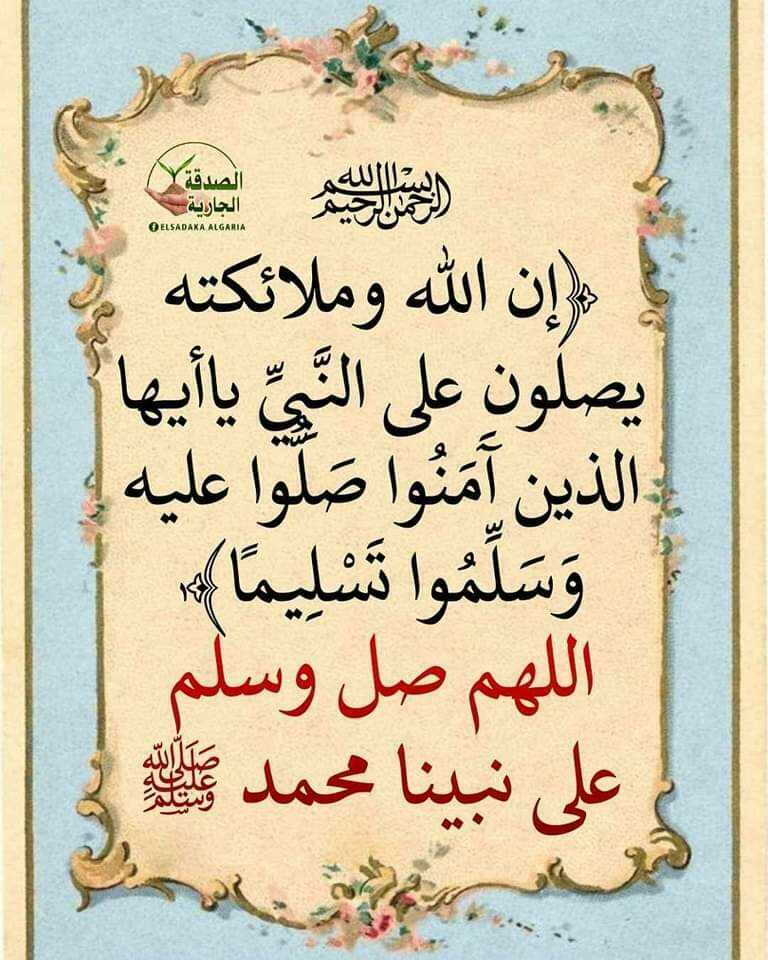 الصدقة
الجارية
ELSADAKA ALGARIA
بسم الله الرحمن الرحيم
﴿إن الله وملائكته
يصلون على النَّبِيِّ ياأيها
الذين آمَنُوا صَلُّوا عليه
وَسَلِّمُوا تَسْلِيمًا﴾
اللهم صل وسلم
على نبينا محمد ﷺ